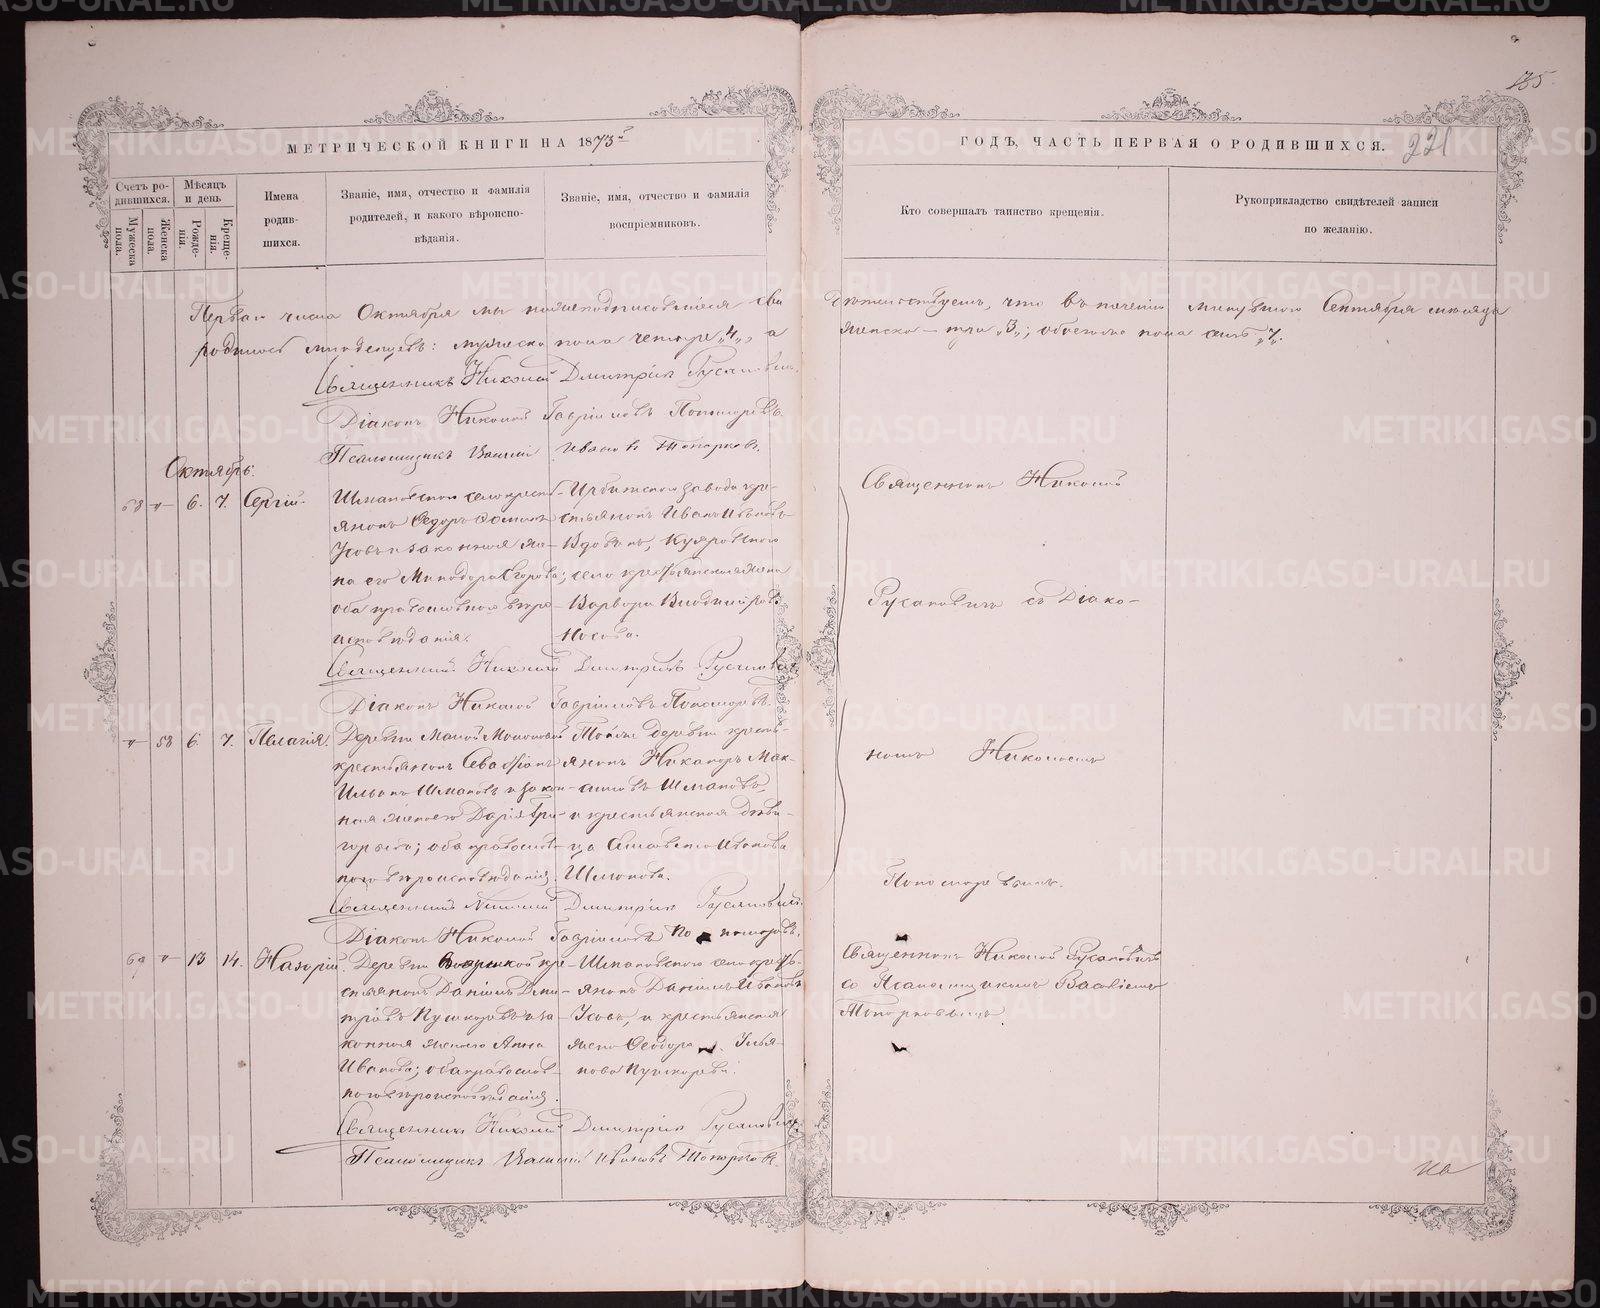 185
МЕТРИЧЕСКОЙ КНИГИ НА 1873й
ГОДЪ, ЧАСТЬ ПЕРВАЯ О РОДИВШИХСЯ. 221
Счетъ ро-
дившихся.
Мужеска
пола.
Женска
пола.
Мѣсяцъ
и день
Рожде-
нія.
Креще-
нія.
Имена
родив-
шихся.
Званіе, имя, отчество и фамилія
родителей, и какого вѣроиспо-
вѣданія.
Званіе, имя, отчество и фамилія
воспріемниковъ.
Кто совершалъ таинство крещенія.
Рукоприкладство свидѣтелей записи
по желанію.
Перваго числа Октября мы нижеподписавшіеся сви
дѣтельствуемъ, что въ теченіи минувшаго Сентября мѣсяца
родилось младенцевъ: мужеска пола четыре „4“, а
женска – три „3“; обоего пола семь „7“.
Священникъ Николай Димитріевъ Русановичъ
Діаконъ Николай Гавріиловъ Пономаревъ.
Псаломщикъ Василій Ивановъ Топорковъ.
Октябрь:
68 " 6. 7. Сергій.
Шмаковскаго села кресть-
янинъ Ѳедоръ
Усовъ и законная же-
на его Минодора Егорова;
оба православнаго вѣро-
исповѣданія.
Ирбитскаго завода кре-
стьянинъ Иванъ Ивановъ
Вдовинъ, Куяровскаго
села крестьянская жена
Варвара Владимірова
Носова.
Священникъ Николай
Русановичъ съ Діако-
номъ Николаемъ
Пономаревымъ.
Священникъ Николай Димитріевъ Русановичъ
Діаконъ Николай Гавріиловъ Пономаревъ.
" 58 6. 7. Пелагія.
Деревни Малой
крестьянинъ Севастіанъ
Ильинъ Шмаковъ и закон-
ная жена его Дарія Гри-
горьева; оба православ-
наго вѣроисповѣданія.
Той же деревни кресть-
янинъ Никаноръ Мак-
симовъ Шмаковъ,
и крестьянская дѣви-
ца Ивановa
Шмакова.
Священникъ Николай Димитріевъ Русановичъ.
Діаконъ Николай Гавріиловъ Пономаревъ.
69 " 13 14. Назарій.
Деревни кре-
стьянинъ Даніилъ Дми-
тріевъ Пушкаревъ и за-
конная жена его Анна
Иванова; оба православ-
наго вѣроисповѣданія.
Шмаковскаго села кресть-
янинъ Даніилъ Ивановъ
Усовъ, и крестьянская
жена Ѳеодора Улья-
нова Пушкарева.
Священникъ Николай Русановичъ
со Псаломщикомъ Василіемъ
Топорковымъ
Священникъ Николай Димитріевъ Русановичъ
Псаломщикъ Василій Ивановъ Топорковъ.
METRIKI.GASO-URAL.RU